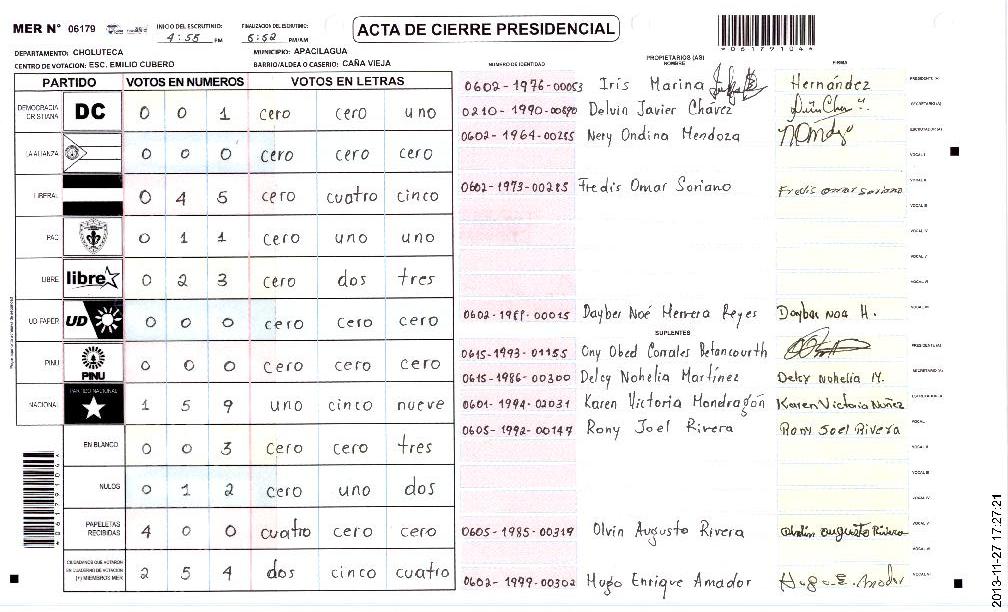 MER N° 06179
INICIO DEL ESCRUTINIO:
4:55 PM
FINALIZACION DEL ESCRUTINIO:
5:52 PM/AM
ACTA DE CIERRE PRESIDENCIAL
*06179104*
DEPARTAMENTO: CHOLUTECA
MUNICIPIO: APACILAGUA
CENTRO DE VOTACION: ESC. EMILIO CUBERO
BARRIO/ALDEA O CASERIO: CAÑA VIEJA
PARTIDO VOTOS EN NUMEROS VOTOS EN LETRAS
DEMOCRACIA CRISTIANA DC 0 0 1 cero cero uno
LA ALIANZA 0 0 0 cero cero cero
LIBERAL 0 4 5 cero cuatro cinco
PAC 0 1 1 cero uno uno
LIBRE libre 0 2 3 cero dos tres
UD-FAPER UD 0 0 0 cero cero cero
PINU PINU 0 0 0 cero cero cero
NACIONAL PARTIDO NACIONAL 1 5 9 uno cinco nueve
EN BLANCO 0 0 3 cero cero tres
NULOS 0 1 2 cero uno dos
PAPELETAS RECIBIDAS 4 0 0 cuatro cero cero
CIUDADANOS QUE VOTARON EN CUADERNO DE VOTACION (+) MIEMBROS MER 2 5 4 dos cinco cuatro
NUMERO DE IDENTIDAD
PROPIETARIOS (AS)
NOMBRE
FIRMA
0602-1976-00053 Iris Marina Hernández PRESIDENTE (A)
0210-1990-00890 Delvin Javier Chávez SECRETARIO (A)
0602-1964-00255 Nery Ondina Mendoza ESCRUTADOR (A)
VOCAL I
0602-1973-00285 Fredis Omar Soriano Fredis omar soriano VOCAL II
VOCAL III
VOCAL IV
VOCAL V
VOCAL VI
Dayber Noé Herrera Reyes Dayber Noa H.
SUPLENTES
0615-1993-01155 Ony Obed Corrales Betancourth PRESIDENTE (A)
0615-1986-00300 Delcy Nohelia Martínez Delcy Nohelia M. SECRETARIO (A)
0601-1994-02031 Karen Victoria Mondragón Karen Victoria Nuñez ESCRUTADOR (A)
0605-1992-00147 Rony Joel Rivera Rony Joel Rivera VOCAL I
VOCAL II
VOCAL III
VOCAL IV
0605-1985-00319 Olvin Augusto Rivera Olvin augusto Rivera VOCAL V
0602-1999-00302 Hugo Enrique Amador Hugo E. Amador
*06179104*
2013-11-27 17:27:21